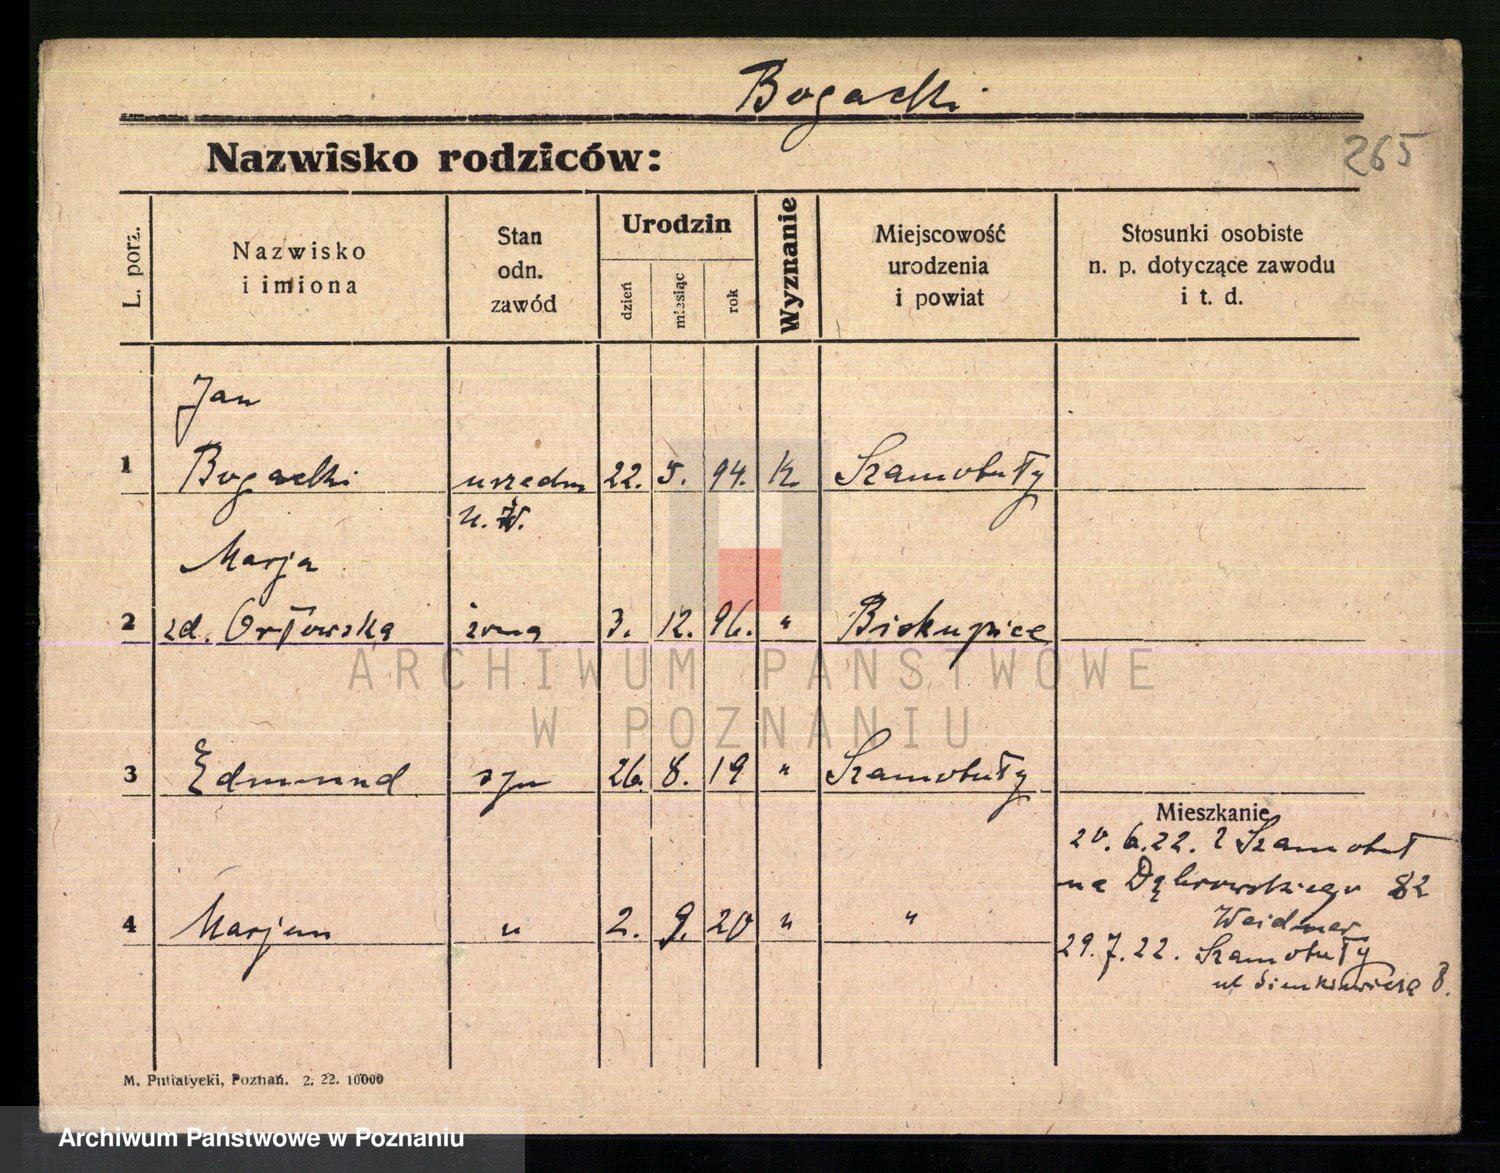 Bogacki
Nazwisko rodziców:
265
L. porz.
Nazwisko
i imiona
Stan
odn.
zawód
Urodzin
dzień
miesiąc
rok
Wyznanie
Miejscowość
urodzenia
i powiat
Stosunki osobiste
n. p. dotyczące zawodu
i t. d.
Jan
1 Bogacki urzedn 22. 5. 94. K. Szamotuły
Marja
2 zd. Orłowska żona 3. 12. 96. " Biskupice
ARCHIWUM PAŃSTWOWE
W POZNANIU
3 Edmund syn 26. 8. 19 " Szamotuły
Mieszkanie
20. 6. 22. Szamotuł
na Dąbrowskiego 82
4 Marjan " 2. 9. 20 " "
Weidner
29. 7. 22. Szamotuły
ul Sienkiewicza 8.
M. Putiatycki, Poznań. 2. 22. 10000
Archiwum Państwowe w Poznaniu